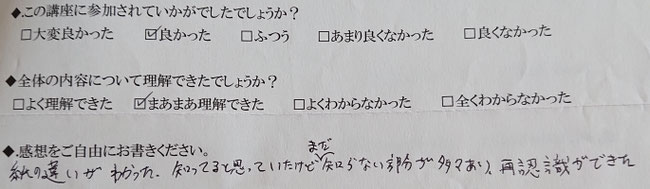 ◆.この講座に参加されていかがでしたでしょうか？
□大変良かった ☑良かった □ふつう □あまり良くなかった □良くなかった
◆全体の内容について理解できたでしょうか？
□よく理解できた ☑まあまあ理解できた □よくわからなかった □全くわからなかった
◆.感想をご自由にお書きください。
紙の違いがわかった。知ってると思っていたけどまだ知らない部分が多々あり、再認識ができた